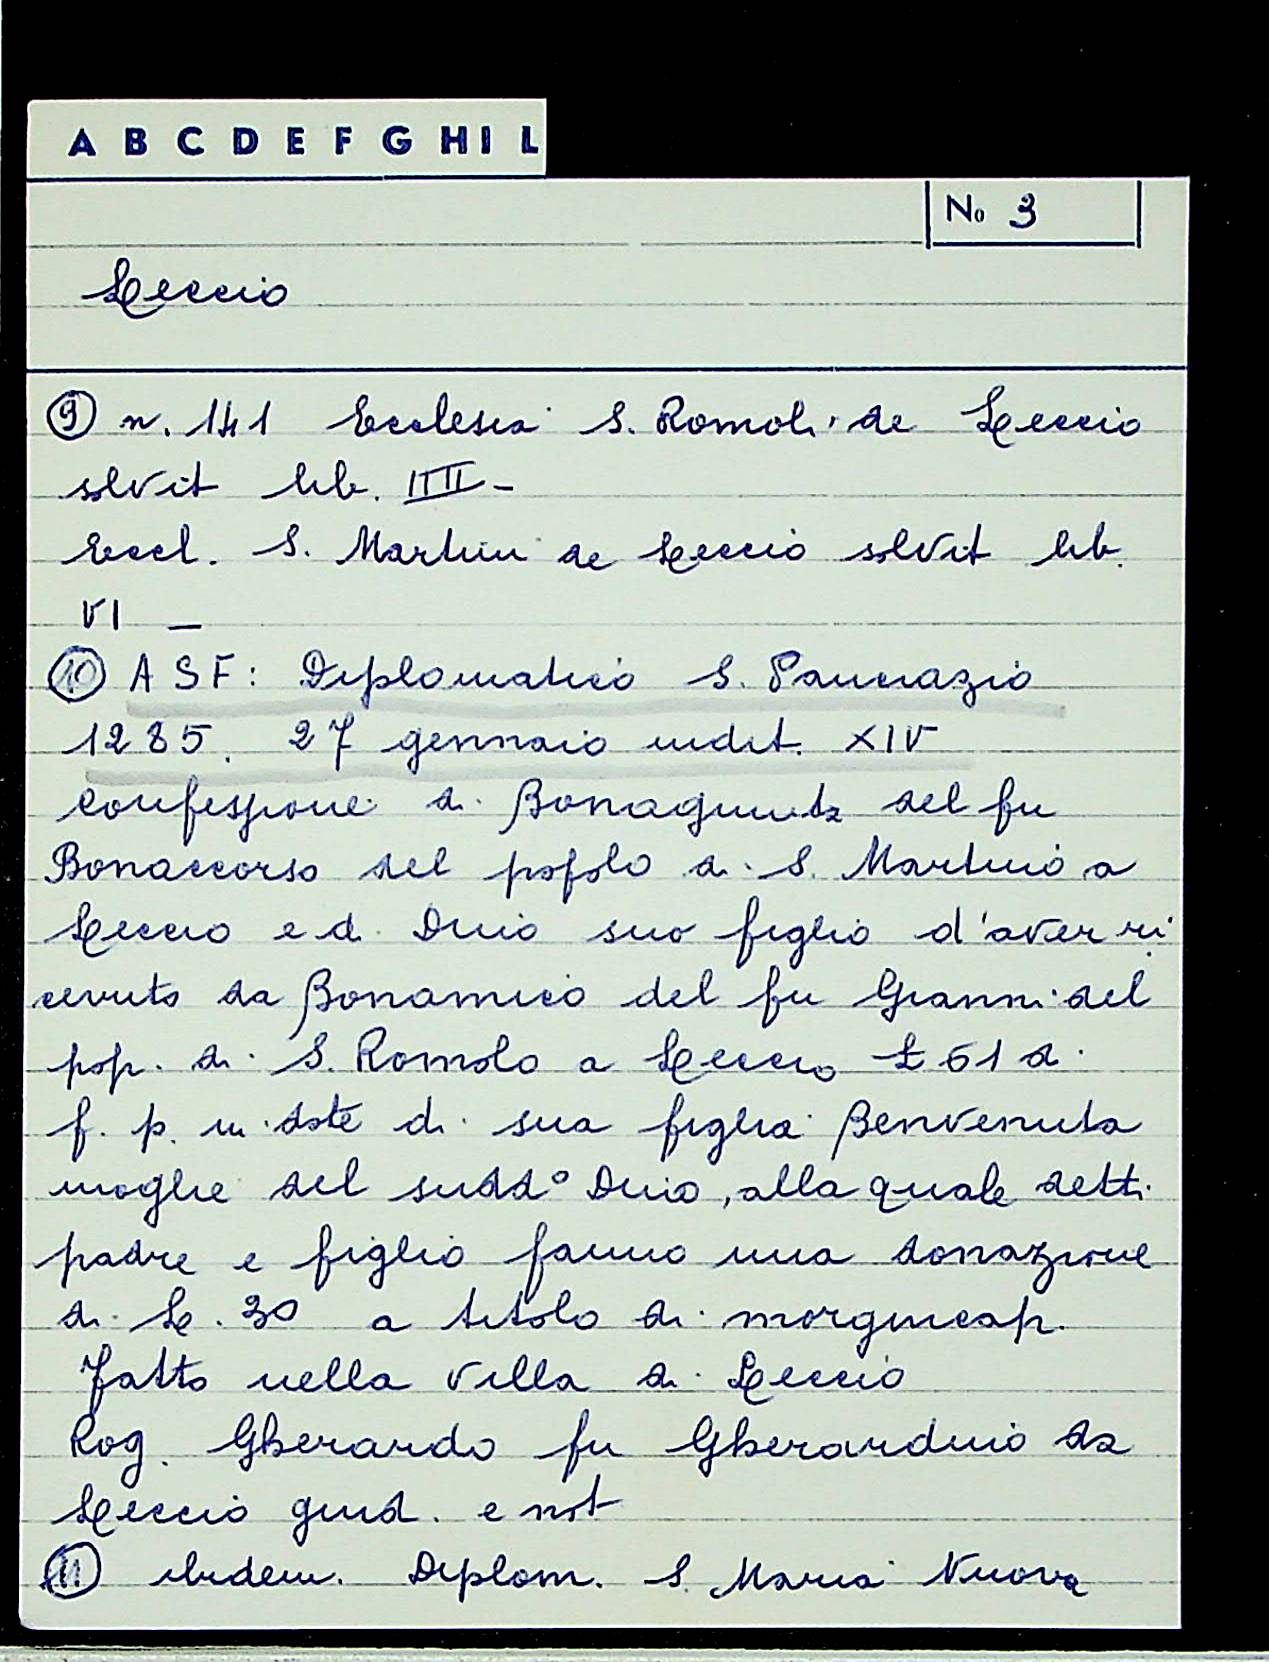 A B C D E F G H I L
No 3
Leccio
9 n. 141 Ecclesia S. Romoli de Leccio
solvit lib. IIII -
Eccl. S. Martini de Leccio solvit lib.
VI —
10 A S F: Diplomatico S. Pancrazio
1285. 27 gennaio indit. XIV
confessione di Bonagiunta del fu
Bonaccorso del popolo di S. Martino a
Leccio e di Duio suo figlio d'aver ri
cevuto da Bonamico del fu Gianni del
pop. di S. Romolo a Leccio £ 61 di
f. p. in dote di sua figlia Benvenuta
moglie del sudd° Duio, alla quale detti
padre e figlio fanno una donazione
di L. 30 a titolo di morgincap.
Fatto nella villa di Leccio
Rog. Gherardo fu Gherarduio da
Leccio giud. e not
11 ibidem. Diplom. S. Maria Nuova